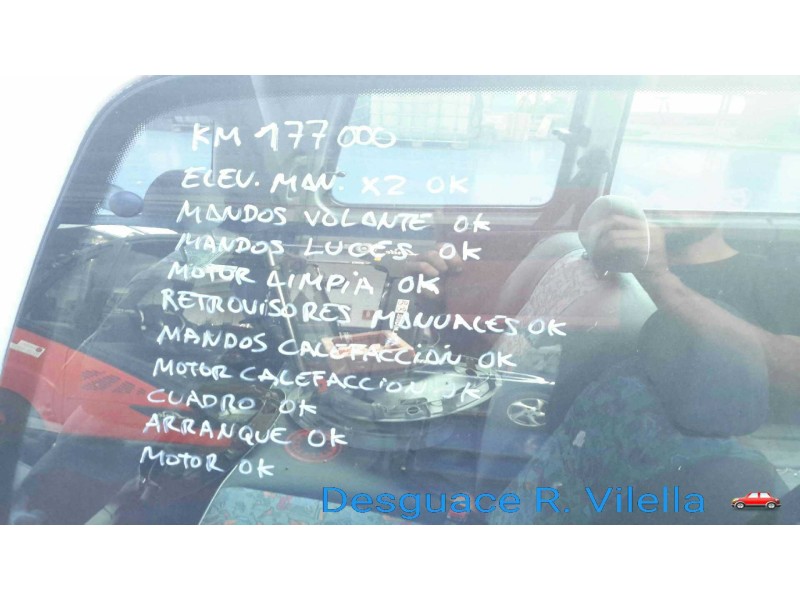 KM 177000
ELEV. MAN. X2 OK
MANDOS VOLANTE OK
MANDOS LUCES OK
MOTOR LIMPIA OK
RETROVISORES MANUALES OK
MANDOS CALEFACCION OK
MOTOR CALEFACCION OK
CUADRO OK
ARRANQUE OK
MOTOR OK
Desguace R. Vilella